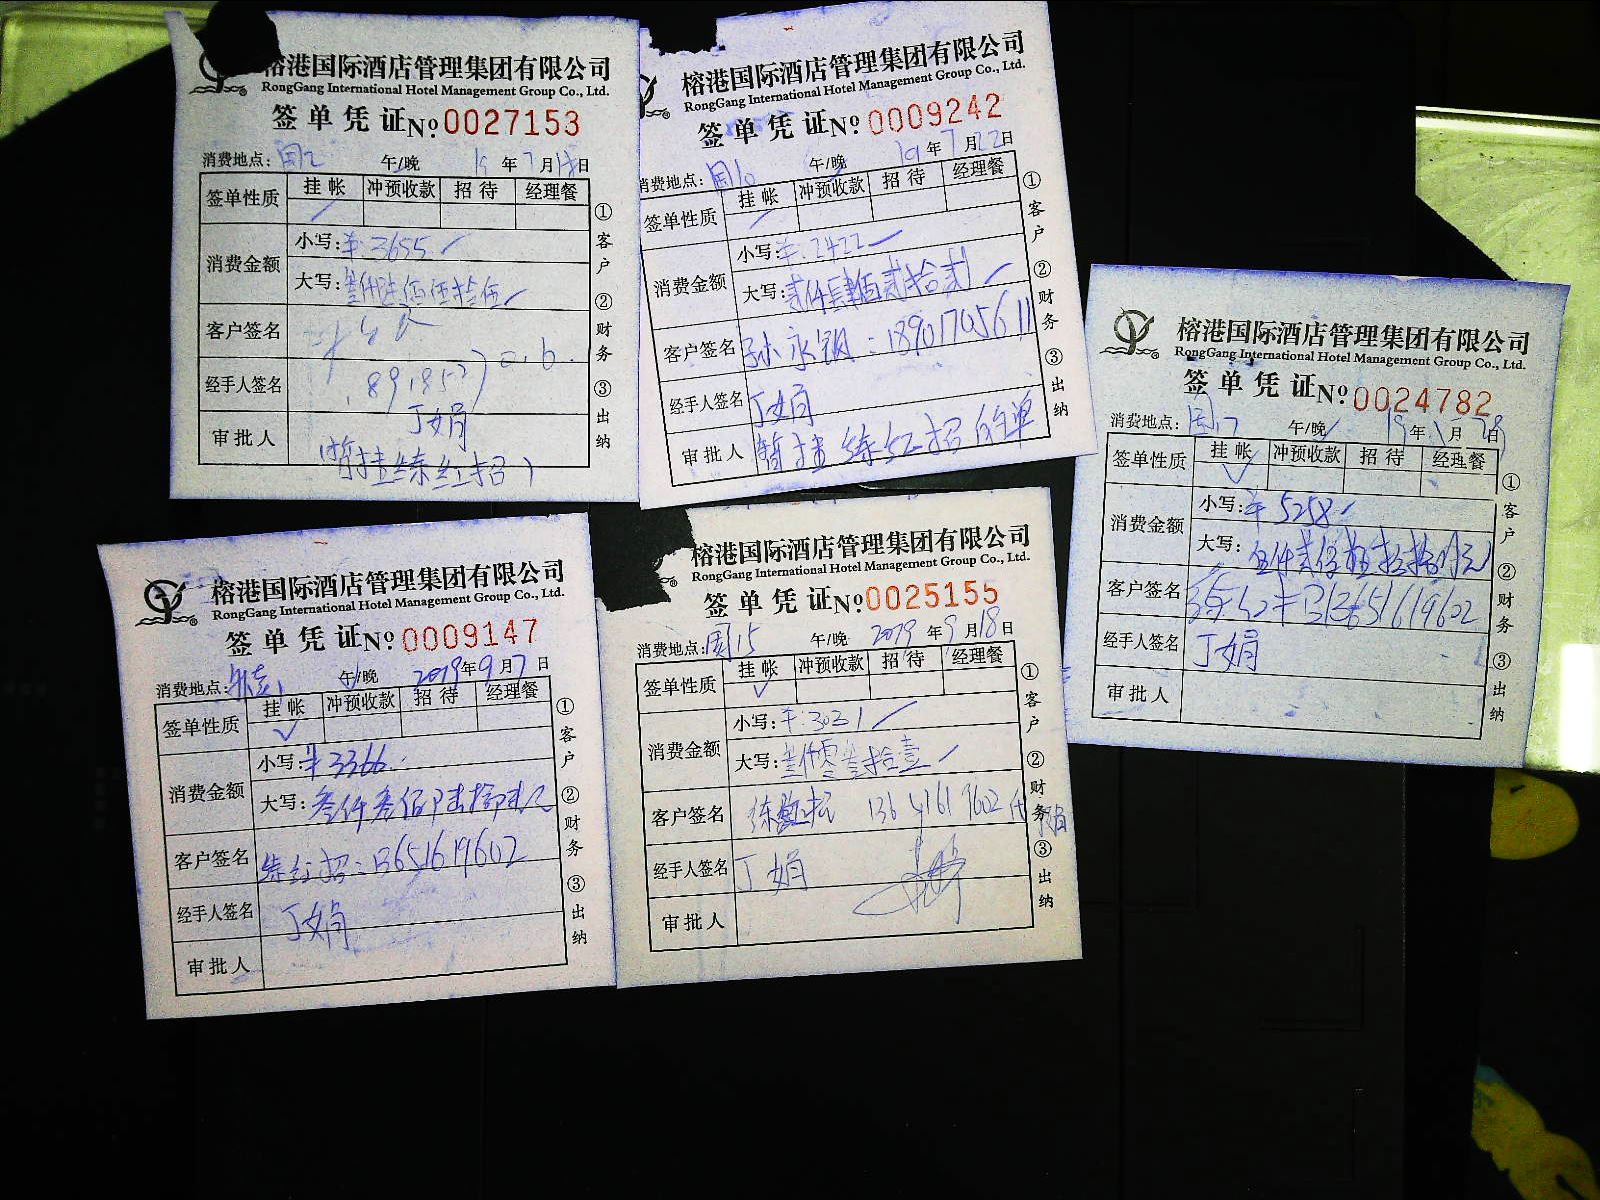 榕港国际酒店管理集团有限公司
RongGang International Hotel Management Group Co., Ltd.
签单凭证 No: 0027153
消费地点: 国2 午/晚 19年7月 日
签单性质 挂帐 冲预收款 招待 经理餐
消费金额 小写: ¥3655
大写: 叁仟陆佰伍拾伍
客户签名
经手人签名 丁娟
审批人 (暂挂练红招)
①客户 ②财务 ③出纳
榕港国际酒店管理集团有限公司
RongGang International Hotel Management Group Co., Ltd.
签单凭证 No: 0009242
消费地点: 国10 午/晚 19年7月22日
签单性质 挂帐 冲预收款 招待 经理餐
消费金额 小写: ¥:2422
大写: 贰仟肆佰贰拾贰
客户签名 孙永钢: 18901705611
经手人签名 丁娟
审批人 暂挂练红招的单
①客户 ②财务 ③出纳
榕港国际酒店管理集团有限公司
RongGang International Hotel Management Group Co., Ltd.
签单凭证 No: 0024782
消费地点: 国17 午/晚 19年 月 日
签单性质 挂帐 冲预收款 招待 经理餐
消费金额 小写: ¥5258
大写: 伍仟贰佰伍拾捌元
客户签名 13651619602
经手人签名 丁娟
审批人
①客户 ②财务 ③出纳
榕港国际酒店管理集团有限公司
RongGang International Hotel Management Group Co., Ltd.
签单凭证 No: 0009147
消费地点: 午/晚 2019年9月7日
签单性质 挂帐 冲预收款 招待 经理餐
消费金额 小写: ¥3366
大写: 叁仟叁佰陆拾陆元
客户签名 练红招: 13651619602
经手人签名 丁娟
审批人
①客户 ②财务 ③出纳
榕港国际酒店管理集团有限公司
RongGang International Hotel Management Group Co., Ltd.
签单凭证 No: 0025155
消费地点: 国15 午/晚 2019年9月18日
签单性质 挂帐 冲预收款 招待 经理餐
消费金额 小写: ¥:3031
大写: 叁仟零叁拾壹
客户签名 练红招 13651619602
经手人签名 丁娟
审批人
①客户 ②财务 ③出纳